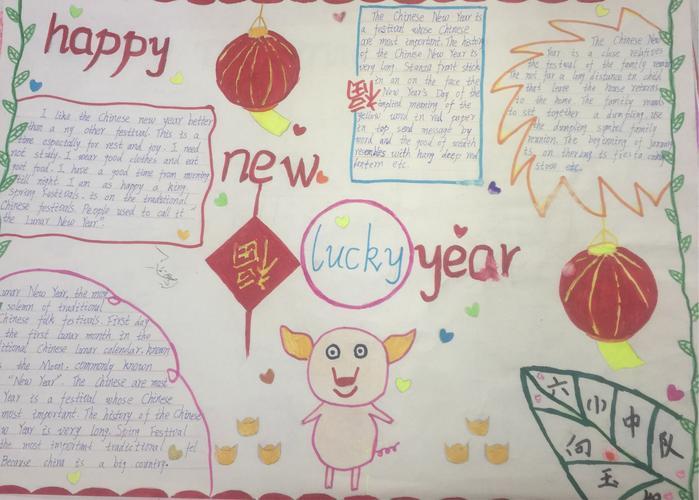 happy
new
lucky
year
福
The Chinese New Year is
a festival whose Chinese
are most important. The history
of the Chinese New Year is
very long.
in an on the face the
New Year's Day of the
meaning of the
yellow word in red paper
in top send message by
word and the good of wealth
resembles with hang deep red
lantern etc.
福
The Chinese New
Year is a close relatives
the festival of the family
The not far a long distance
that leave the house returns
to the home. The family
to sit together a dumpling, use
the dumpling symbol family
reunion. The beginning of January
is on
etc.
I like the Chinese new year better
than a ny other festival. This is a
time especially for rest and joy. I need
not study. I wear good clothes and eat
good food. I have a good time from morning
till night. I am as happy a king.
Spring festivals. is on the traditional
Chinese festivals. People used to call it "
the Lunar New Year".
福
Lunar New Year, the most
solemn of traditional
Chinese folk festivals. First day
the first lunar month in the
Chinese lunar calendar. known
the Moon. commonly known
"New Year". The Chinese are most
Year is a festival whose Chinese
most important. The history of the Chinese
Year is very long. Spring Festival
the most important traditional fel
Because china is a big country.
六小中队
向玉